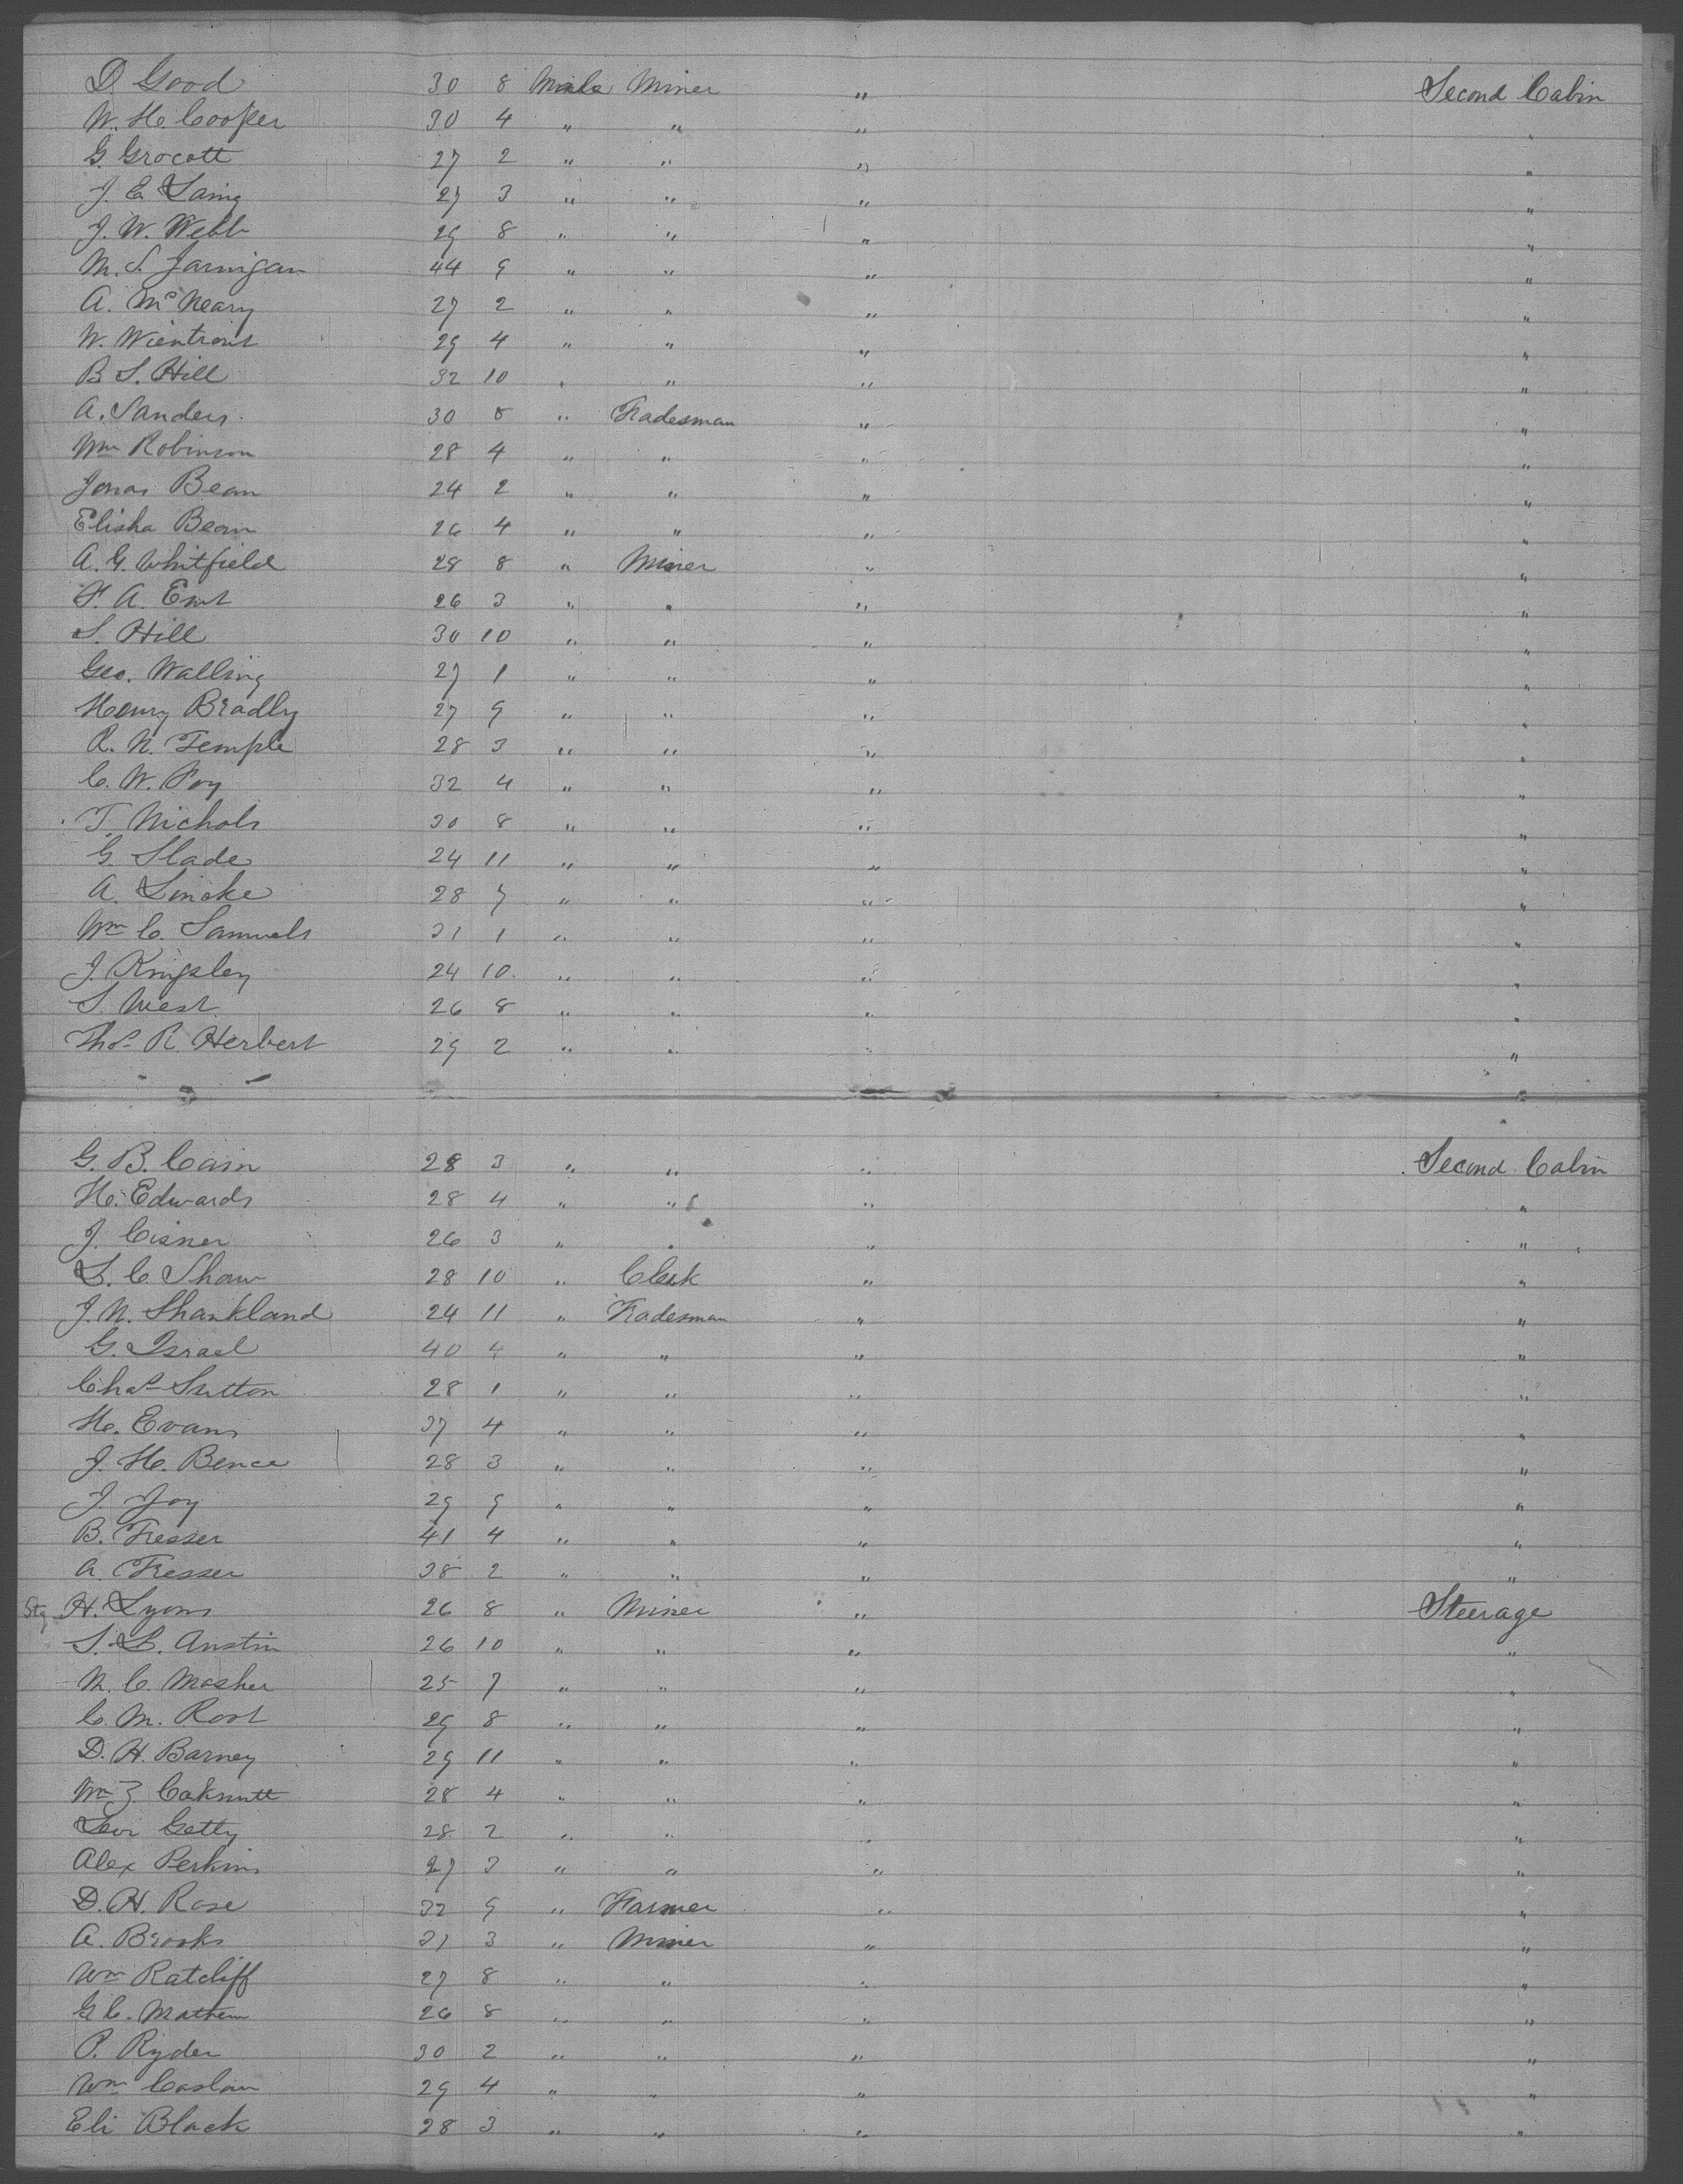 D. Good 30 8 Male Miner " Second Cabin
W. H. Cooper 30 4 " " " "
G. Grocott 27 2 " " " "
J. E. Laing 27 3 " " " "
J. W. Webb 29 8 " " " "
M. S. Jarnigan 44 9 " " " "
A. McNeary 27 2 " " " "
W. 29 4 " " " "
B. S. Hill 32 10 " " " "
A. Sanders 30 8 " Tradesman " "
Wm Robinson 28 4 " " " "
Jonas Bean 24 2 " " " "
Elisha Bean 26 4 " " " "
A. G. Whitfield 28 8 " Miner " "
F. A. 26 3 " " " "
S. Hill 30 10 " " " "
Geo. Walling 27 1 " " " "
Henry Bradly 27 9 " " " "
R. N. Temple 28 3 " " " "
C. W. Foy 32 4 " " " "
T. Nichols 30 8 " " " "
G. Slade 24 11 " " " "
A. 28 7 " " " "
Wm C. Samuels 31 1 " " " "
J. Kingsley 24 10 " " " "
S. West 26 8 " " " "
Thos R. Herbert 29 2 " " " "
G. B. Cain 28 3 " " " Second Cabin
H. Edwards 28 4 " " " "
J. Cisner 26 3 " " " "
L. C. Shaw 28 10 " Clerk " "
J. N. Shankland 24 11 " Tradesman " "
G. Israel 40 4 " " " "
Chas Sutton 28 1 " " " "
H. Evans 37 4 " " " "
J. H. Bence 28 3 " " " "
J. Joy 29 9 " " " "
B. Tresser 41 4 " " " "
A. Tresser 38 2 " " " "
Stg H. Lyons 26 8 " Miner " Steerage
S. L. Austin 26 10 " " " "
M. C. Masher 25 7 " " " "
C. M. Root 29 8 " " " "
D. H. Barney 29 11 " " " "
Wm Z. 28 4 " " " "
Levi Getty 28 2 " " " "
Alex Perkins 27 3 " " " "
D. H. Rose 32 9 " Farmer " "
A. Brooks 31 3 " Miner " "
Wm Ratcliff 27 8 " " " "
G. C. Mathew 26 8 " " " "
P. Ryder 30 2 " " " "
Wm Caslow 29 4 " " " "
Eli Black 28 3 " " " "